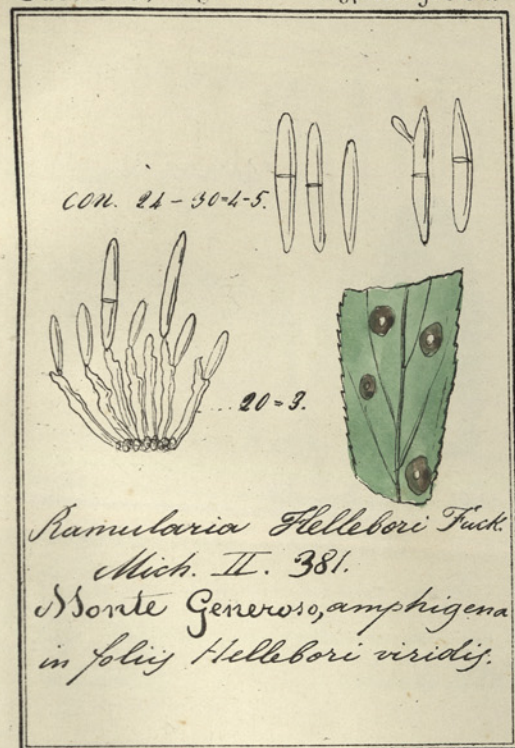 CON. 24 - 30=4-5.
20=3.
Ramularia Hellebori Fuck.
Mich. II. 381.
Monte Generoso, amphigena
in foliis Hellebori viridis.